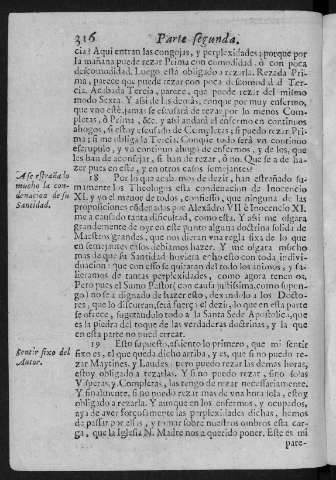 316
Parte segunda.
cia? Aqui entran las congojas, y perplexidades; porque por
la mañana puede rezar Prima con comodidad, ò con poca
descomodidad. Luego està obligado a rezarla. Rezada Pri-
ma, parece que puede rezar con poca descomodidad Ter-
cia. Acabada Tercia, parece, que puede rezar del mismo
modo Sexta. Y assi de las demàs, conque por muy enfermo,
que vno estè, jamàs se escusarà de rezar por lo menos Com-
pletas, ò Prima, &c. y assi andarà el enfermo en continuos
ahogos, si estoy escusado de Completas; si puedo rezar Pri-
ma; si me obliga la Tercia, Conque todo serà vn continuo
escrupulo, y vn continuo ahogo de enfermos, y de los, que
les han de aconsejar, si han de rezar, ò no. Que se à de ha-
zer pues en este, y en otros casos semejantes?
A se estraña lo
mucho la con-
denacion de su
Santidad.
18 Por lo que acabamos de dezir, han estrañado su-
mamente los Theologos esta condenacion de Inocencio
XI. y yo el menor de todos, confiesso, que ninguna de las
proposiciones condenadas por Alexādro VII è Inocencio XI.
me à causado tanta dificultad, como esta. Y assi me olgara
grandemente de oyr en este punto alguna doctrina solida de
Maestros grandes, que nos dieran vna regla fixa de lo que
en semejantes casos debiamos hazer. Y me olgara mucho
mas de que su Santidad huviera echo esto con toda indivi-
duacion: que con esso se quitarian del todo los animos, y sa-
lieramos de tantas perplexidades, como agora tenemos.
Pero pues el Sumo Pastor (con causa justissima, como supon-
go) no se à dignado de hazer esto, dexandolo a los Docto-
res, que lo discurran, serà fuerça el dezir, lo que en esta parte
se ofrece, sugetandolo todo a la Santa Sede Apostolica, que
es la piedra del toque de las verdaderas doctrinas, y la que
en esta parte no puede errar.
Sentir fixo del
Autor.
19 Esto supuesto, assiento lo primero, que mi sentir
fixo es, el que queda dicho arriba, y es, que si no puedo re-
zar Maytines, y Laudes; pero puedo rezar las demàs horas,
estoy obligado a rezarlas. Y si no puedo rezar, sino solas
Visperas, y Completas, las tengo de rezar necessariamente.
Y finalmente, si no puedo rezar mas de vna hora sola, estoy
obligado a rezarla. Y aunque en los enfermos, y ocupados,
aya de aver forçosamente las perplexidades dichas, hemos
de passar por ellas, y tomar sobre nuestros ombros esta car-
ga, que la Iglesia N. Madre nos a querido poner. Este es mi
pare-